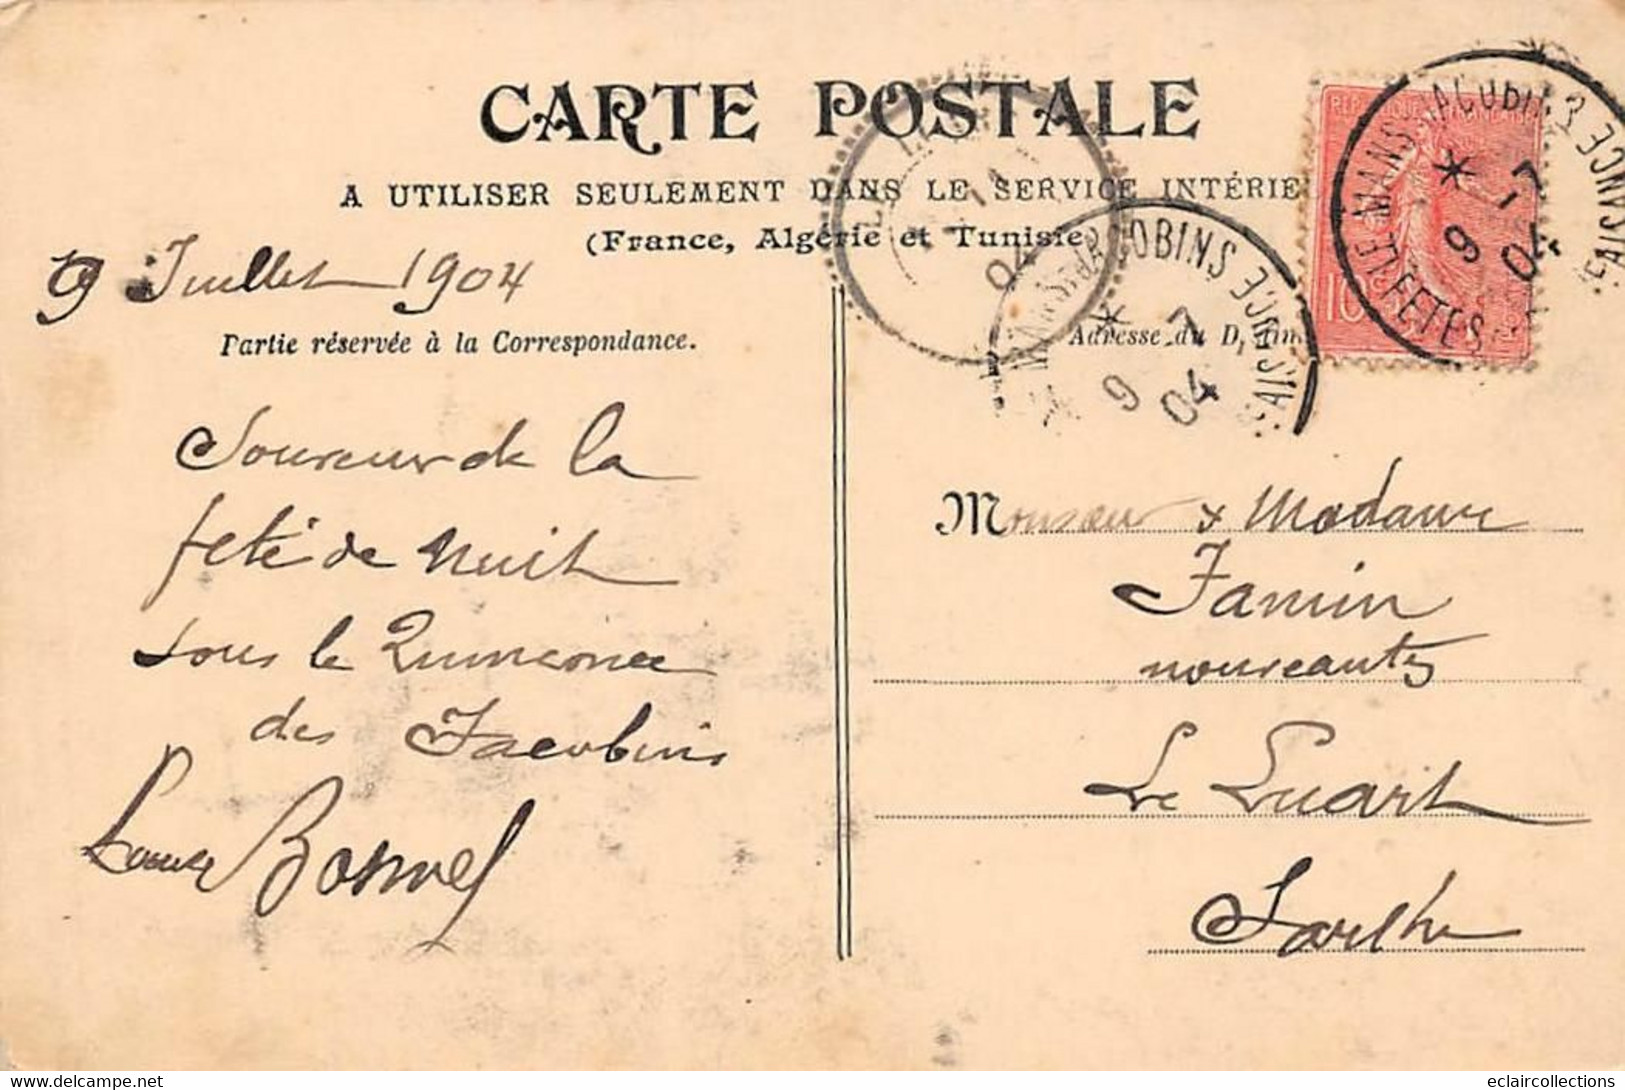 CARTE POSTALE
A UTILISER SEULEMENT DANS LE SERVICE INTÉRIE
(France, Algérie et Tunisie
9 Juillet 1904
Partie réservée à la Correspondance.
Souvenir de la
fete de nuit
sous le Quinconce
des Jacobins
Bonnel
Adresse du D
LE MANS JACOBINS
FETES
AISANCE
* 9 -7 04
MANS JACOBINS
AISANCE
* 9 -7 04
10
Monsieur & Madame
Jamin
nouveautés
Le Luart
Sarthe
www.delcampe.net
eclaircollections